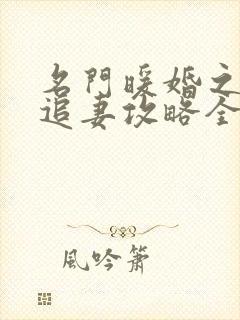 名門暖婚之
追妻攻略全
風吟簫